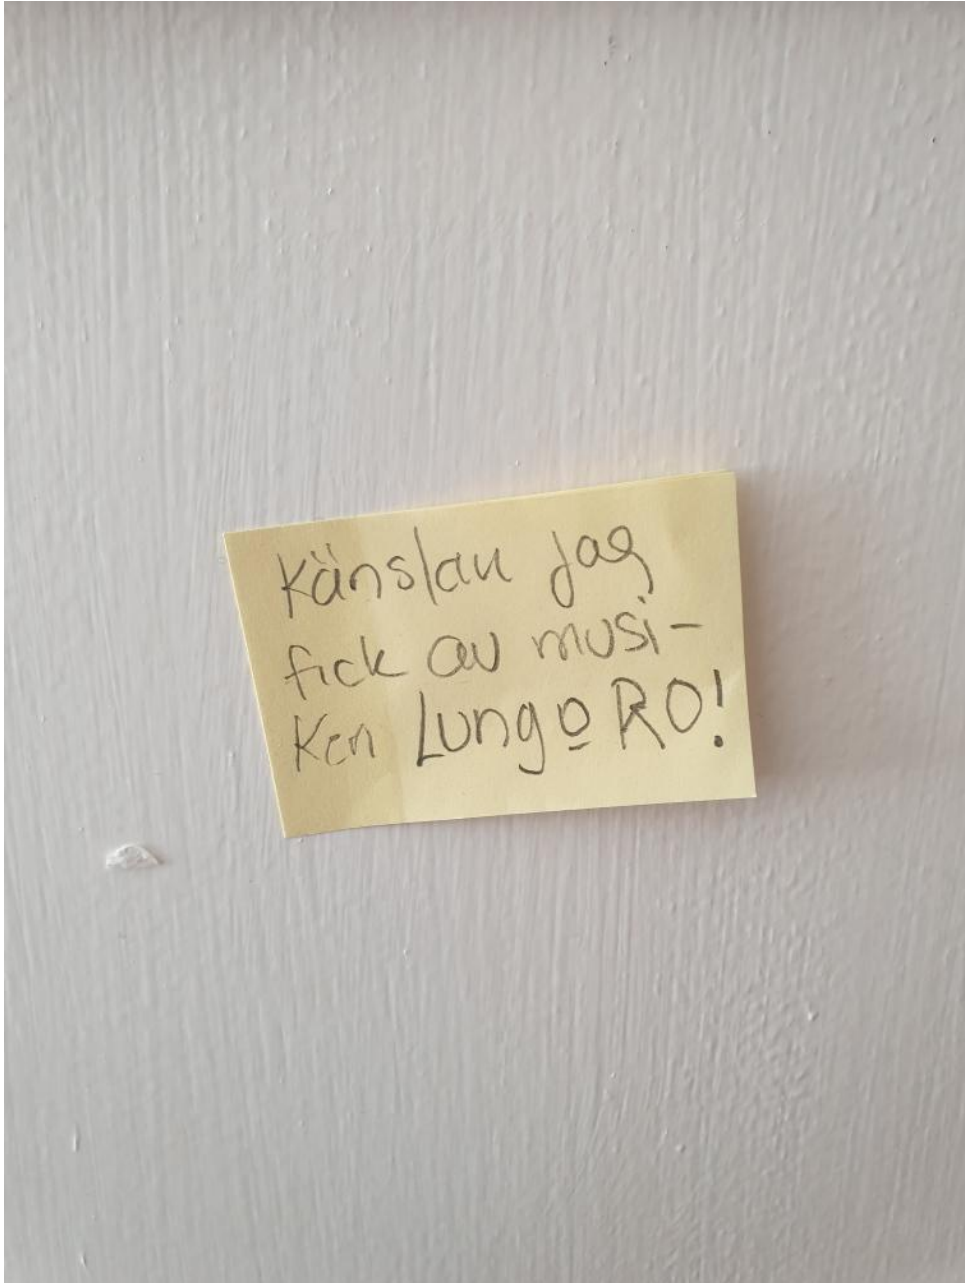 Känslan jag
fick av musi-
ken Lung o RO!